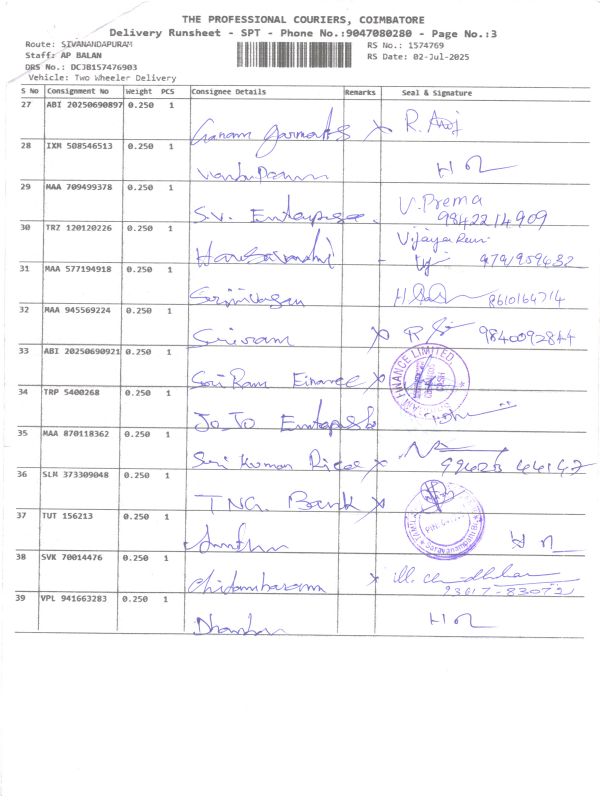 THE PROFESSIONAL COURIERS, COIMBATORE
Delivery Runsheet - SPT - Phone No.:9047080280 - Page No.:3
Route: SIVANANDAPURAM RS No.: 1574769
Staff: AP BALAN RS Date: 02-Jul-2025
DRS No.: DCJB157476903
Vehicle: Two Wheeler Delivery
S No Consignment No Weight PCS Consignee Details Remarks Seal & Signature
27 ABI 20250690897 0.250 1 Garments R.
28 IXM 508546513 0.250 1
29 MAA 709499378 0.250 1 S.V. V. Prema
9842214909
30 TRZ 120120226 0.250 1 9791959432
31 MAA 577194918 0.250 1 Srinivasan 8610164714
32 MAA 945569224 0.250 1 Sriram R 9840092844
33 ABI 20250690921 0.250 1 Sri Ram Finance FINANCE LIMITED
34 TRP 5400268 0.250 1 Jo_Jo
35 MAA 870118362 0.250 1 Sri Kumar 99425 44147
36 SLM 373309048 0.250 1 Bank
37 TUT 156213 0.250 1 Saravanampatti
38 SVK 70014476 0.250 1 Chidambaram
93617-83072
39 VPL 941663283 0.250 1